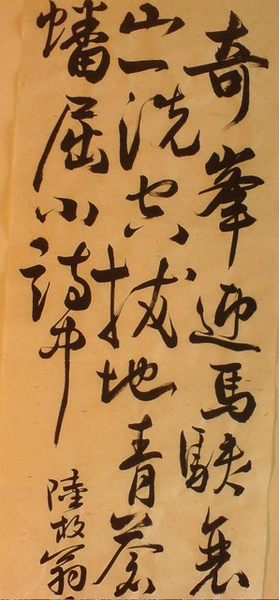 奇峯迎馬駭衰
山一洗空拔地青蒼
蟠屈小詩中
陸放翁